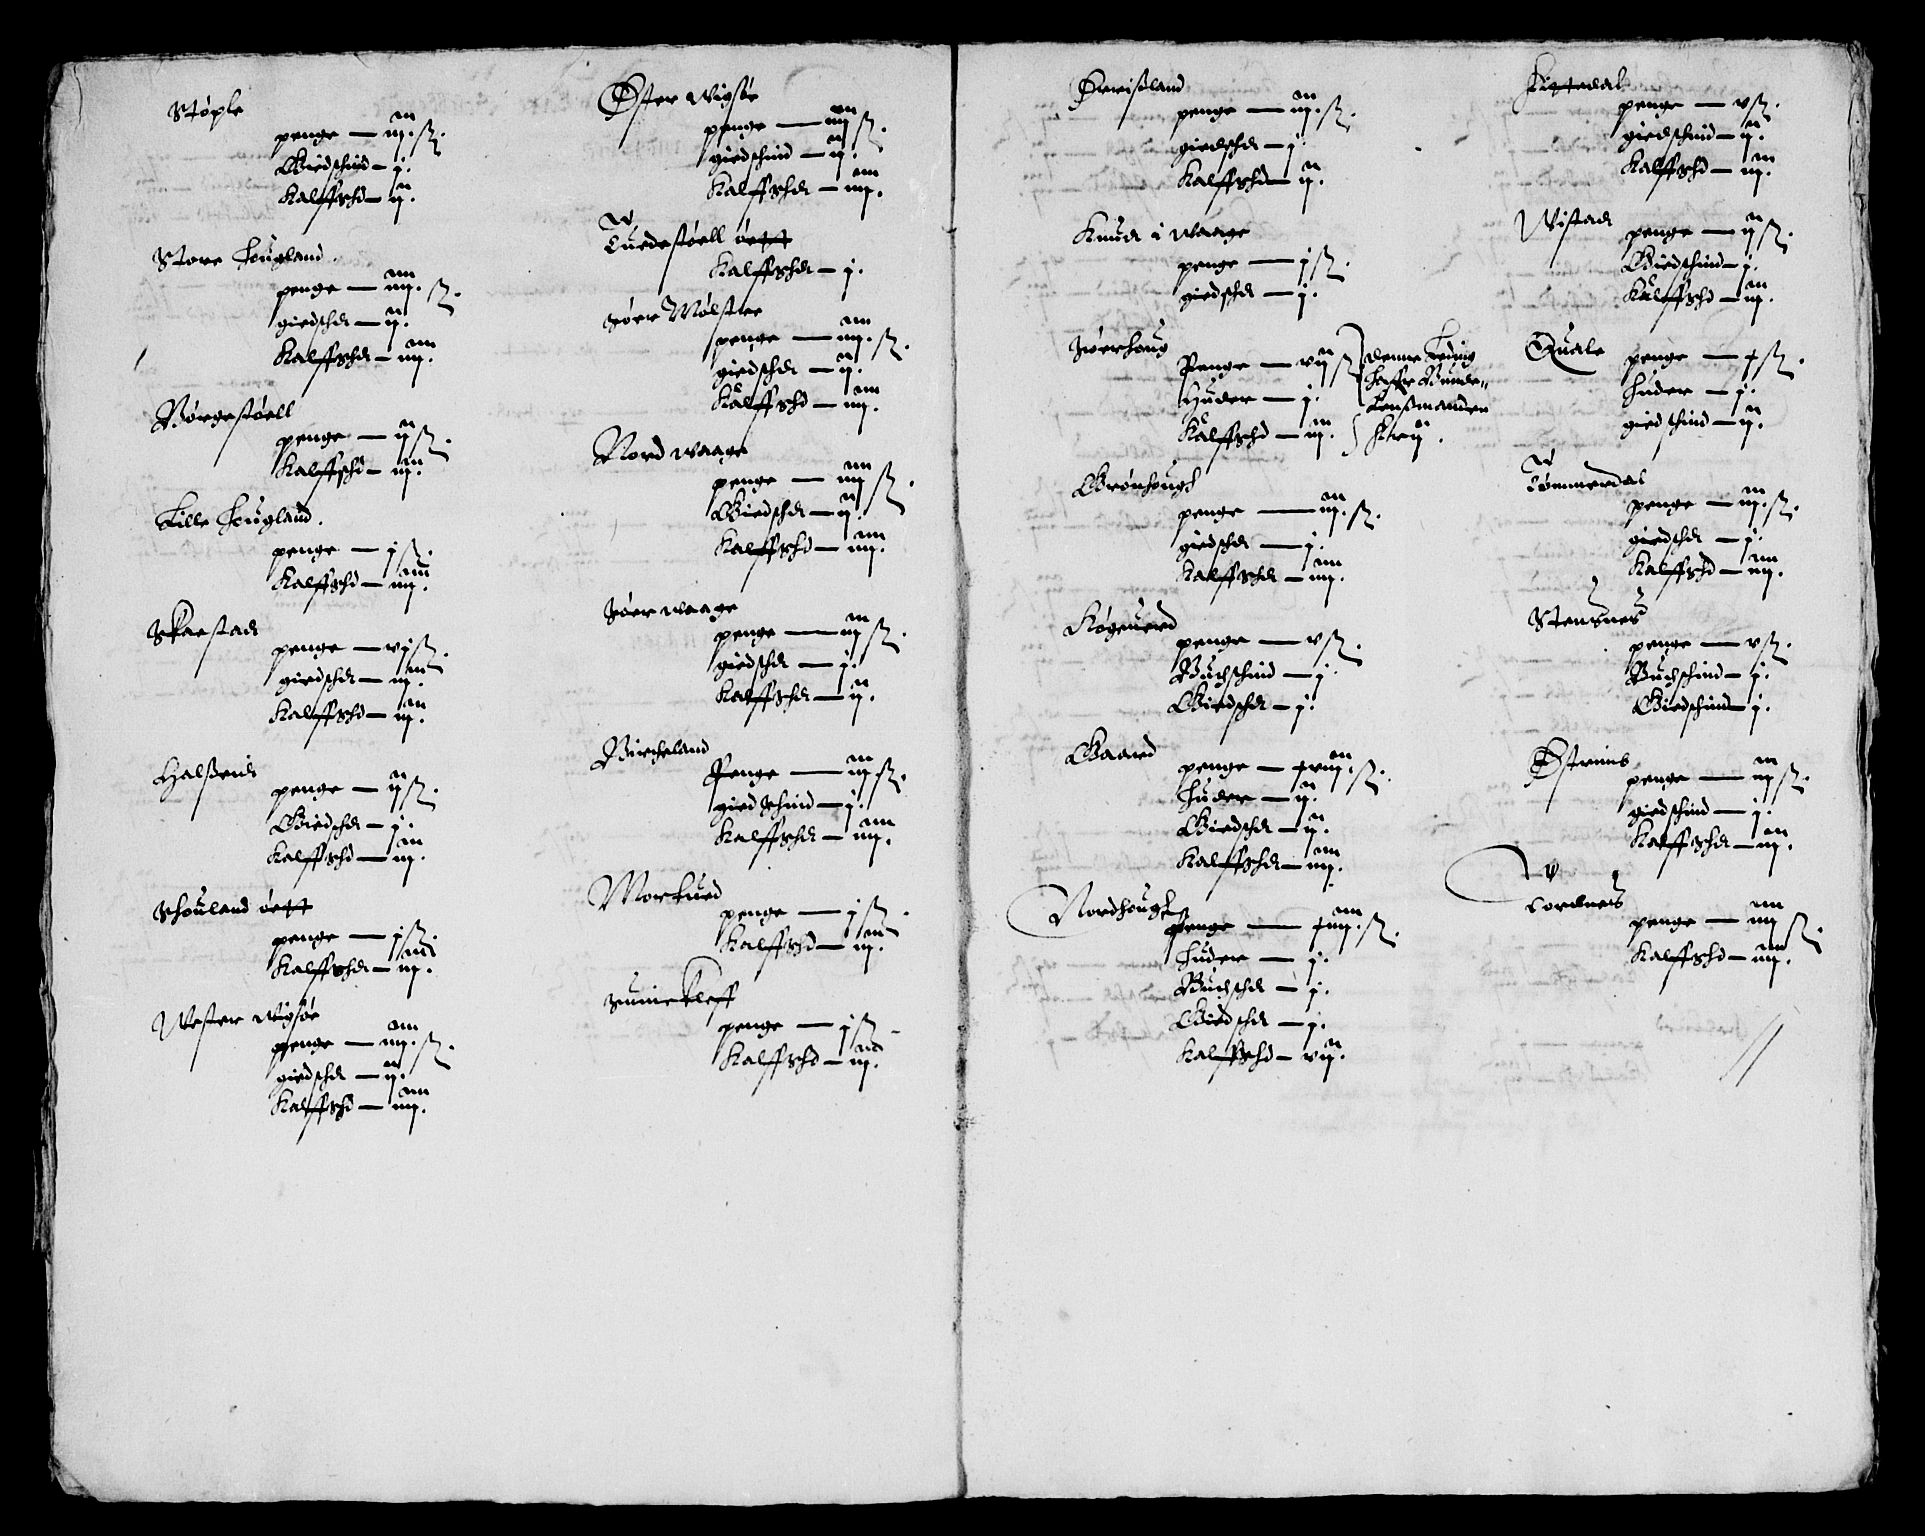 Støple
penge — iij ß.
Giedschind — j.
Kalffschd — ij.
Store hougland.
penge — iiij ß.
giedschd — ij.
Kalffschd — iiij.
Børgestøell
penge — ij ß.
Kalffschd — iij.
Lille hougland.
penge — j ß.
Kalffschd — iiij.
Skaestad
penge — vj ß.
giedschd — iij.
Kalffschd — iij.
Halßeid
penge — ij ß.
Giedschd — j.
Kalffschd — iij.
Schouland
penge — j ß.
Kalffschd — iij.
Wester wigsøe
penge — iiij ß.
giedschd — ij.
Kalffschd — iiij.
Øster wigsøe
penge — iiij ß.
giedschind — ij.
Kalffschd — iiij.
Tuedestøell
Kalffschd — j.
Søer Mølster
penge — iiij ß.
giedschd — ij.
Kalffschd — iiij.
Nord waage
penge — iiij ß.
Giedschd — ij.
Kalffschd — iiij.
Søer waage
penge — iij ß.
giedschd — j.
Kalffschd — ij.
Bircheland
Penge — iij ß.
giedschind — j.
Kalffschd — iiij.
Morkued
penge — j ß.
Kalffschd — iij.
penge — j ß.
Kalffschd — iij.
penge — iij ß.
giedschd — j.
Kalffschd — ij.
Knud i waage
penge — j ß.
giedschd — j.
Søerhoug
Penge — vij ß
Huder — j.
Kalffschd — iij.
denne Leding
haffr Bunde-
Lenßmanden
frij.
Grønhough
penge — iij ß.
giedschd — j.
Kalffschd — iiij.
Høgeuerd
penge — v ß.
Buchschind — j
Giedschd — j.
Gaard
penge — xviij ß.
huder — ij.
Giedschd — ij.
Kalffschd — iiij.
Nordhough
penge — xiiij ß.
huder — j.
Buchschd — j.
Giedschd — j.
Kalffschd — vij.
penge — v ß.
giedschind — ij.
Kalffschd — iij.
Wistad
penge — ij ß.
Giedschind — j.
Kalffschd — iij.
Quale
penge — x ß.
huder — j.
giedschind — ij.
Tømmerdal
penge — iij ß.
giedschd — j.
Kalffschd — iiij.
Stensnes
penge — v ß.
Buchschind — j.
Giedschind — j.
penge — iij ß.
giedschind — j.
Kalffschd — iij.
Tordnes
penge — iiij ß.
Kalffschd — iiij.